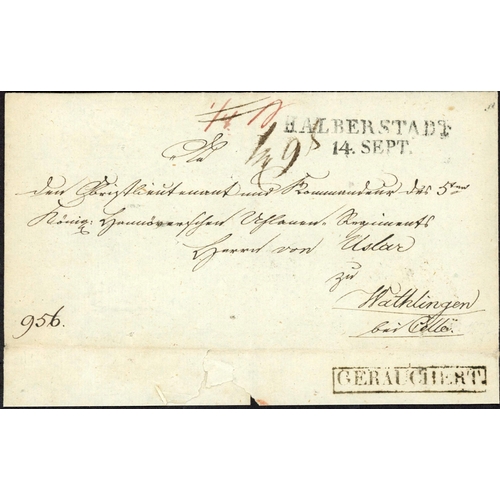 HALBERSTADT
14. SEPT.
An
den Obristlieutenant und Kommandeur des 5ten
Königl: Hannöverschen Uhlanen-Regiments
Herrn von Uslar
zu
Wathlingen
bei Celle.
956.
GERAUCHERT.